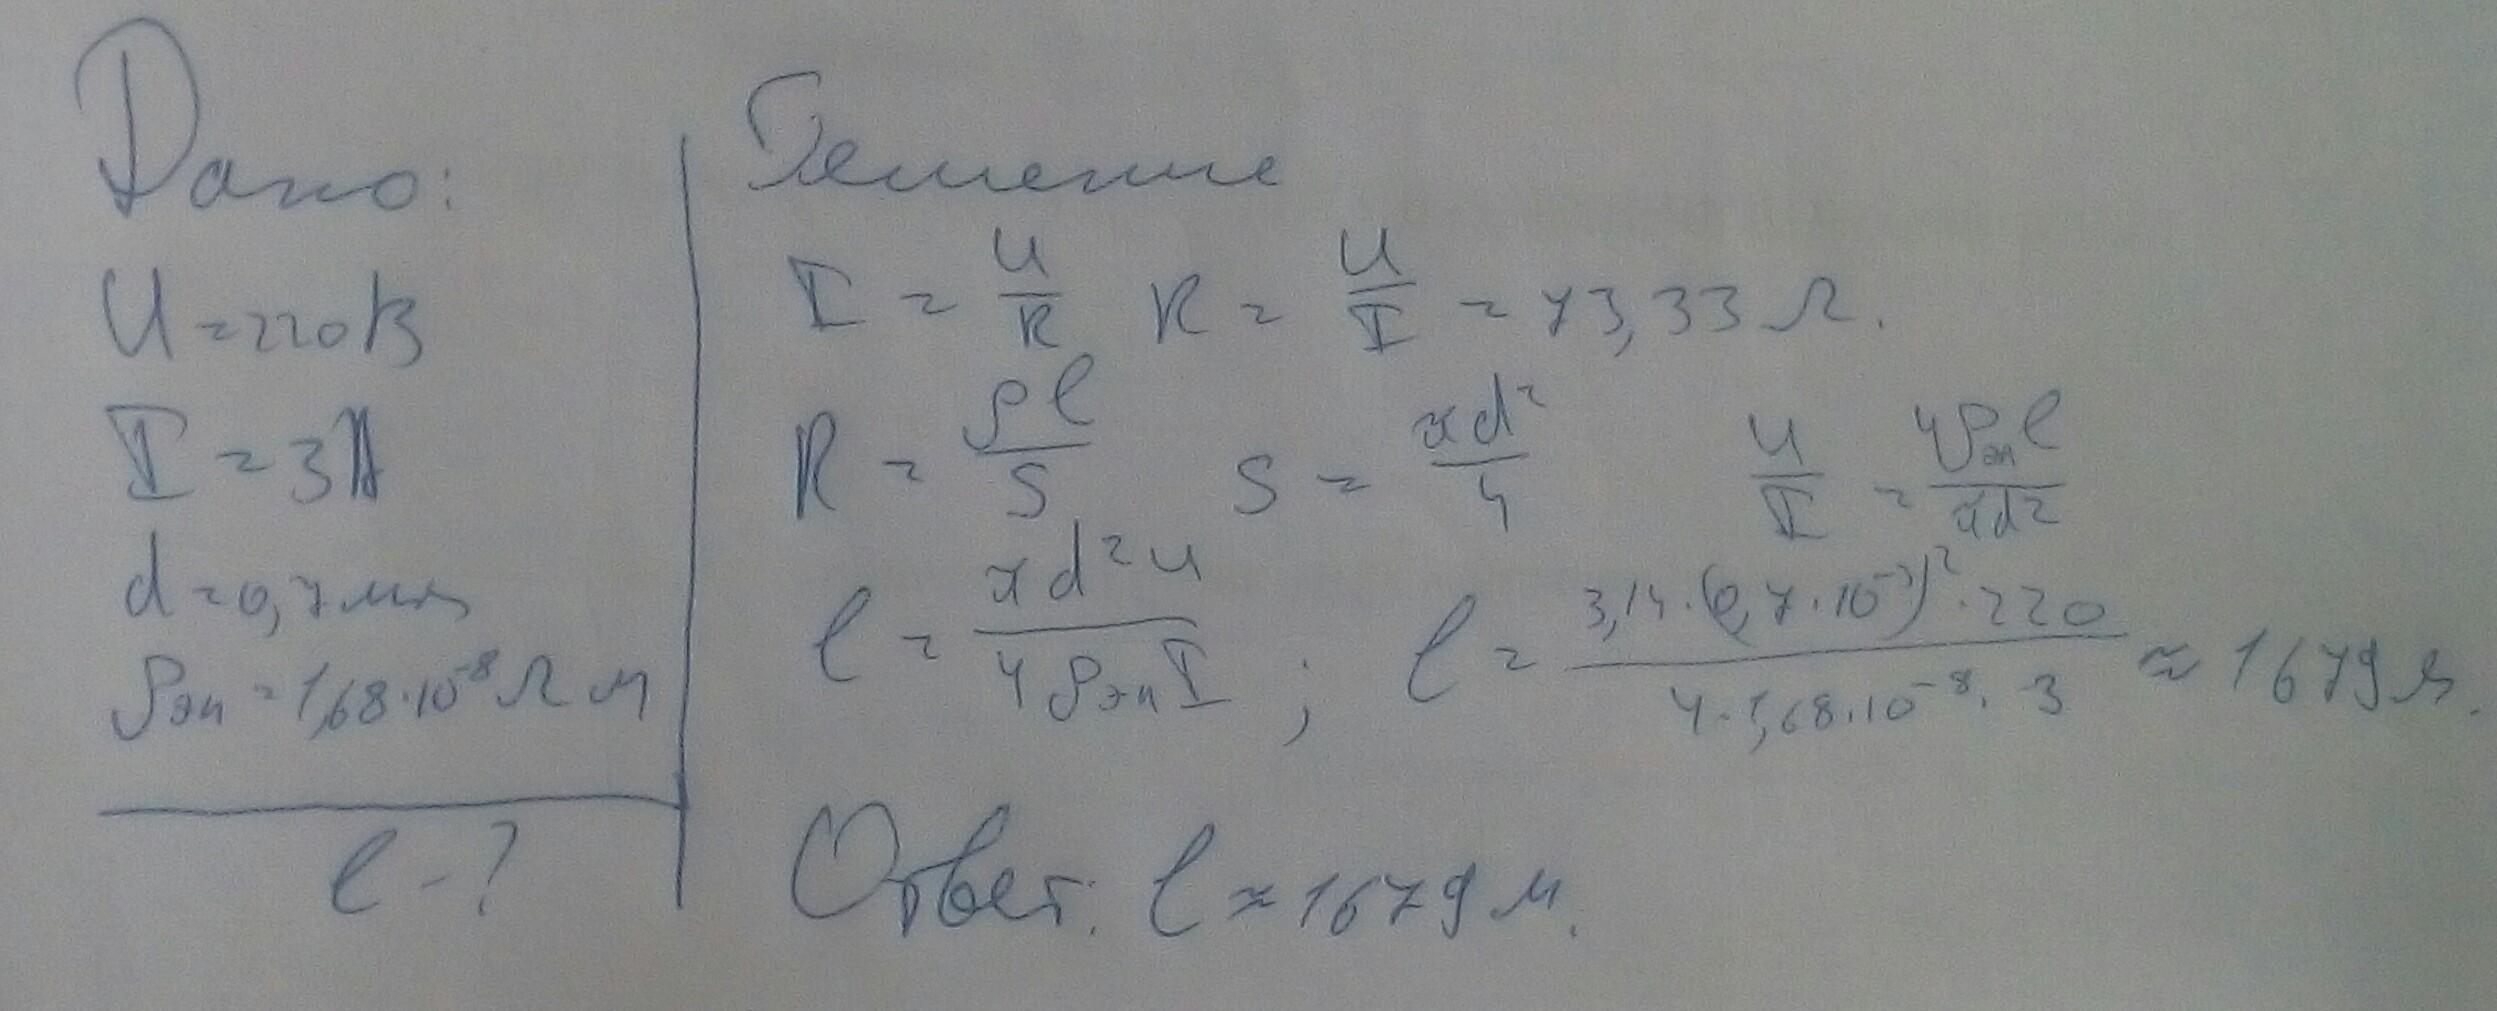 Дано:
U = 220 В
I = 3 А
d = 0,7 мм
ρэл = 1,68·10⁻⁸ Ω м
l - ?
Решение
I = U/R R = U/I = 73,33 Ω.
R = ρl/S S = πd²/4 U/I = 4ρэлl/πd²
l = πd²U/4ρэлI ; l = 3,14·(0,7·10⁻³)²·220/4·1,68·10⁻⁸·3 ≈ 1679 м.
Ответ: l ≈ 1679 м.